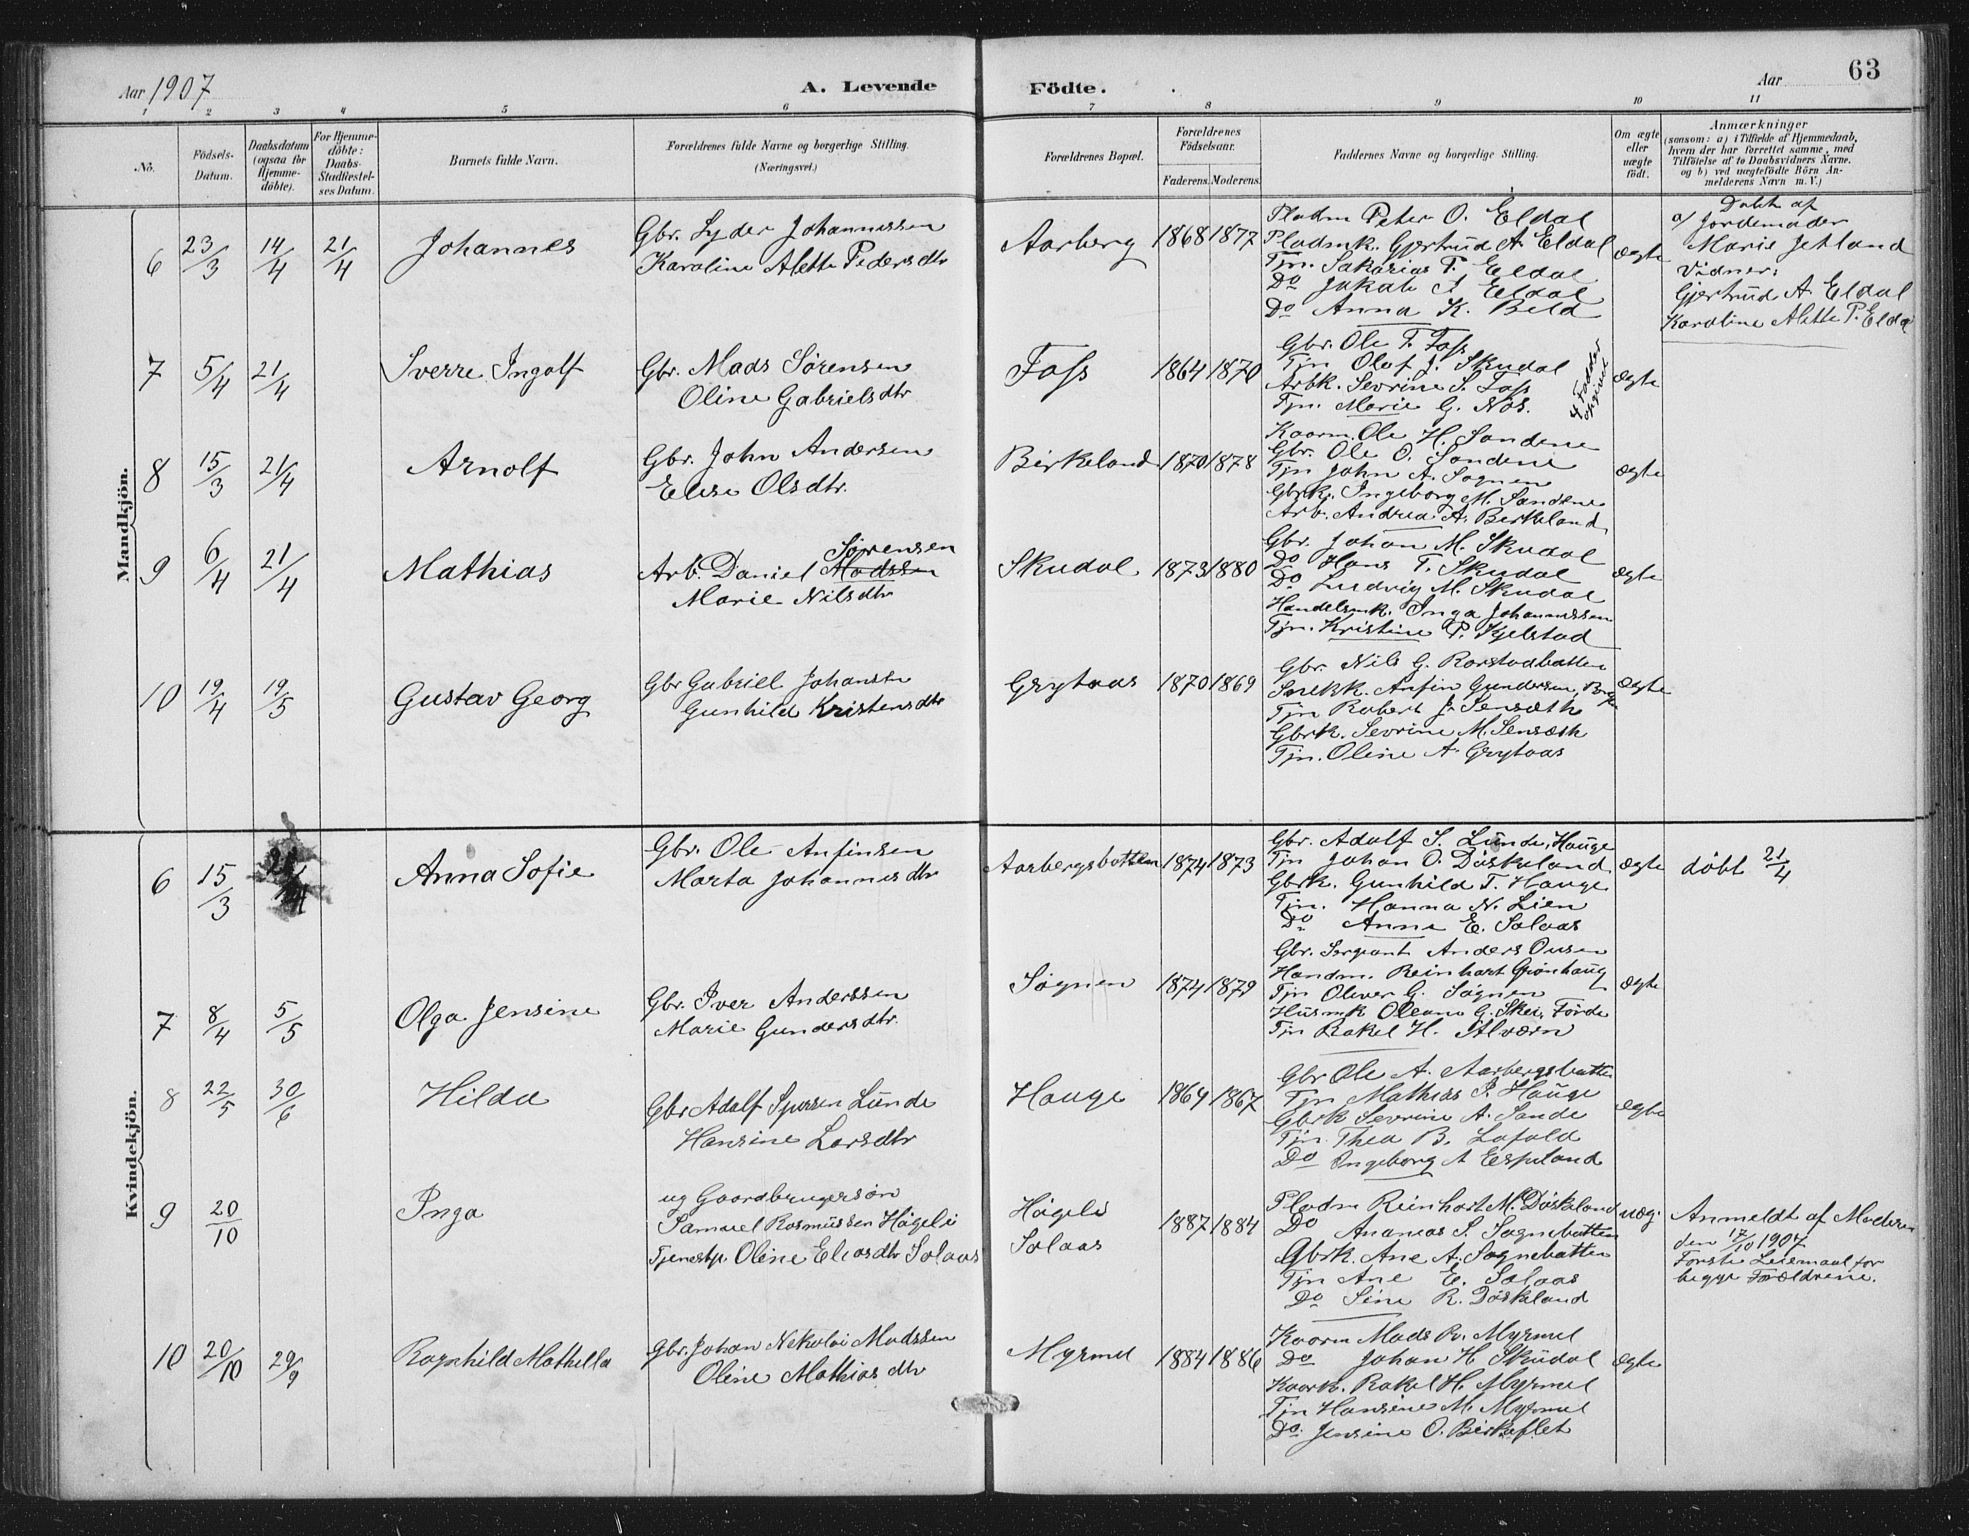 Aar 1907
A. Levende Födte.
Aar
63
1 2 3 4 5 6 7 8 9 10 11
No.
Födsels-Datum.
Daabsdatum (ogsaa for Hjemme-döbte).
For Hjemme-döbte: Daabs-Stadfæstel-ses Datum.
Barnets fulde Navn.
Forældrenes fulde Navne og borgerlige Stilling. (Næringsvei.)
Forældrenes Bopæl.
Forældrenes Födselsaar.
Faderens. Moderens.
Faddernes Navne og borgerlige Stilling.
Om ægte eller uægte födt.
Anmærkninger
(saasom: a) i Tilfælde af Hjemmedaab, hvem der har forrettet samme, med Tilföielse af to Daabsvidners Navne, og b) ved uægtefödte Börn An-melderens Navn m. V.)
Mandkjön.
6 23/3 14/4 21/4 Johannes
Gbr. Lyder Johannessen
Karoline Alette Pedersdtr
Aarberg 1868 1877
Pladm Peter O. Eldal
Pladmk. Gjertrud A. Eldal
Tjn. Sakarias P. Eldal
Do Jakob A Eldal
Do Anna K. Beld
ægte
Døbt af
a/ Jordemoder
Marie Jetland
Vidner:
Gjertrud A Eldal
Karoline Alette P. Eldal
7 5/4 21/4 Sverre Ingolf
Gbr. Mads Sørensen
Oline Gabrielsdtr
Foss 1864 1870
Gbr. Ole T. Foss
Tjn Olof J. Skudal
Arbk. Sevrine S. Foss
Tjn. Marie G. Nos.
4 Faddere opgivet
ægte
8 15/3 21/4 Arnolf
Gbr. John Andersen
Elise Olsdtr.
Birkeland 1870 1878
Kaarm. Ole H. Sandene
Gbr. Ole O. Sandene
Tjn John A. Søgnen
Gbrk. Ingeborg M. Sandene
Arb. Andrea A. Birkeland
ægte
9 6/4 21/4 Mathias
Sørensen
Arb. Daniel Madssen
Marie Nilsdtr
Skudal 1873 1880
Gbr. Johan M. Skudal
Do Hans T. Skudal
Do Ludvig M. Skudal
Handelsmk. Inga Johannessen
Tjn. Kristine P. Kjelstad
ægte
10 19/4 19/5 Gustav Georg
Gbr Gabriel Johansen
Gunhild Kristensdtr
Grytaas 1870 1869
Gbr. Nils G. Rorstadbotten
Snekk. Anfin Gundersen,
Tjn Robert J. Sensæth
Gbrk. Sevrine M. Sensæth
Tjn. Oline A. Grytaas
ægte
Kvindekjön.
6 15/3 21/4 Anna Sofie
Gbr. Ole Anfinsen
Marta Johannesdtr
Aarbergsbotten 1874 1873
Gbr. Adolf S. Lunde, Hauge
Tjn Johan O. Døskeland
Gbrk. Gunhild T. Hauge
Tjn. Hanna N. Lien
Do Anne E. Solaas
ægte døbt 21/4
7 8/4 5/5 Olga Jensine
Gbr. Iver Anderssen
Marie Gundersdtr.
Søgnen 1874 1879
Gbr. Sergeant Anders Ousen
Handm. Reinhart Grønhaug
Tjn Oliver G. Søgnen
Husmk Oleane G. Skei, Førde
Tjn Rakel H. Alværn
ægte
8 22/5 30/6 Hilda
Gbr Adolf Sjursen Lunde
Hansine Larsdtr
Hauge 1864 1867
Gbr Ole A. Aarbergsbotten
Tjn Mathias S. Hauge
Gbrk Sevrine A. Sande
Tjn. Thea B. Lofald
Do Ingeborg A Espeland
ægte
9 20/10 Inga
ug Gaardbrugersøn
Samuel Rasmussen Høgeli
Tjenestp. Oline Eliasdtr Solaas
Høgeli
Solaas
1887 1884
Pladm Reinhart M. Døskeland
Do Ananias S. Søgnebotten
Gbrk. Ane A. Søgnebotten
Tjn Ane E. Solaas
Do Sine R. Døskeland
uæg.
Anmeldt af Moderen
den 17/10 1907
Første Leiermaal for
begge Forældrene.
10 20/10 29/9 Ragnhild Mathilda
Gbr. Johan Nekolai Madssen
Oline Mathiasdtr
Myrmel 1884 1886
Kaarm Mads R. Myrmel
Do Johan H Skudal
Kaark. Rakel H. Myrmel
Tjn Hansine M. Myrmel
Do. Jensine O. Birkeflet
ægte